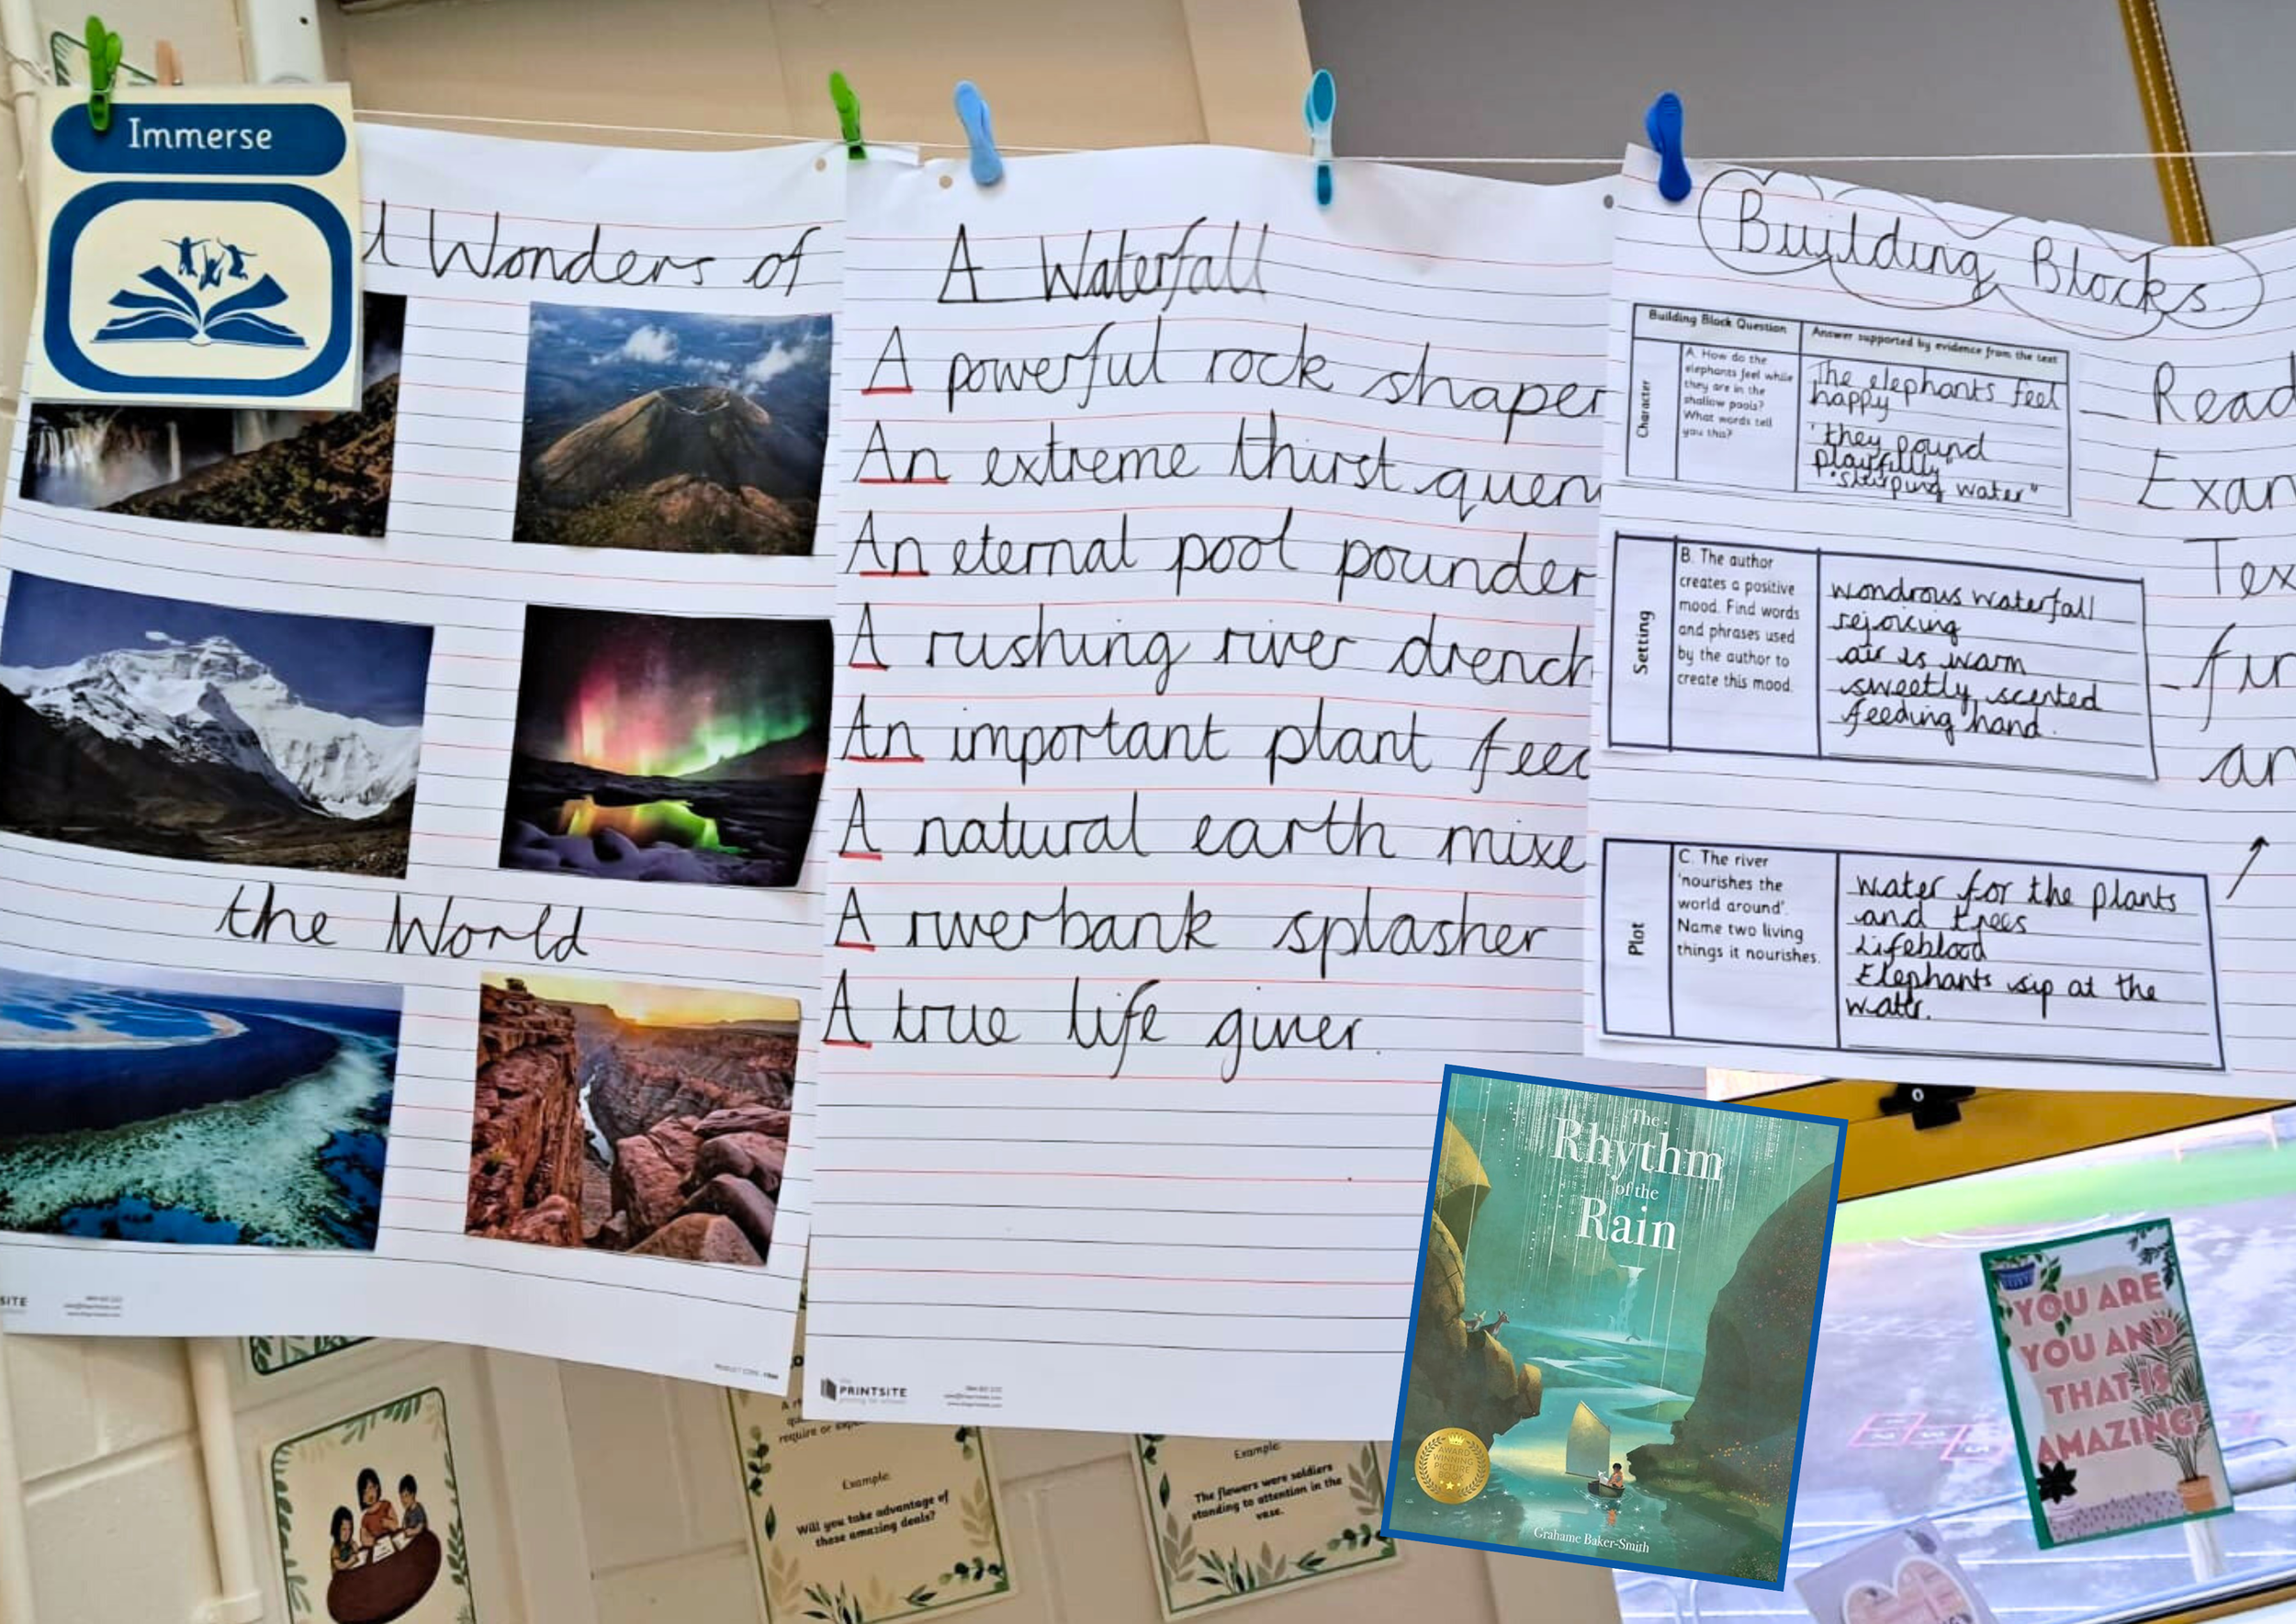 Immerse
Wonders of
the World
A Waterfall
A powerful rock shaper
An extreme thirst quen
An eternal pool pounder
A rushing river drench
An important plant feed
A natural earth mixe
A riverbank splasher
A true life giver.
PRINTSITE
Building Blocks
Building Block Question
Answer supported by evidence from the text
Character
A. How do the
elephants feel while
they are in the
shallow pools?
What words tell
you this?
The elephants feel
happy
'they pound
playfully"
"slurping water"
Setting
B. The author
creates a positive
mood. Find words
and phrases used
by the author to
create this mood.
wondrous waterfall
rejoicing
air is warm
sweetly scented
feeding hand.
Plot
C. The river
'nourishes the
world around'.
Name two living
things it nourishes.
water for the plants
and trees
Lifeblood
Elephants sip at the
water.
Read
Exam
Tex
fin
an
The
Rhythm
of the
Rain
AWARD
WINNING
PICTURE
BOOK
Grahame Baker-Smith
YOU ARE
YOU AND
THAT IS
AMAZING!
require or
Example:
Will you take advantage of
these amazing deals?
Example:
The flowers were soldiers
standing to attention in the
vase.